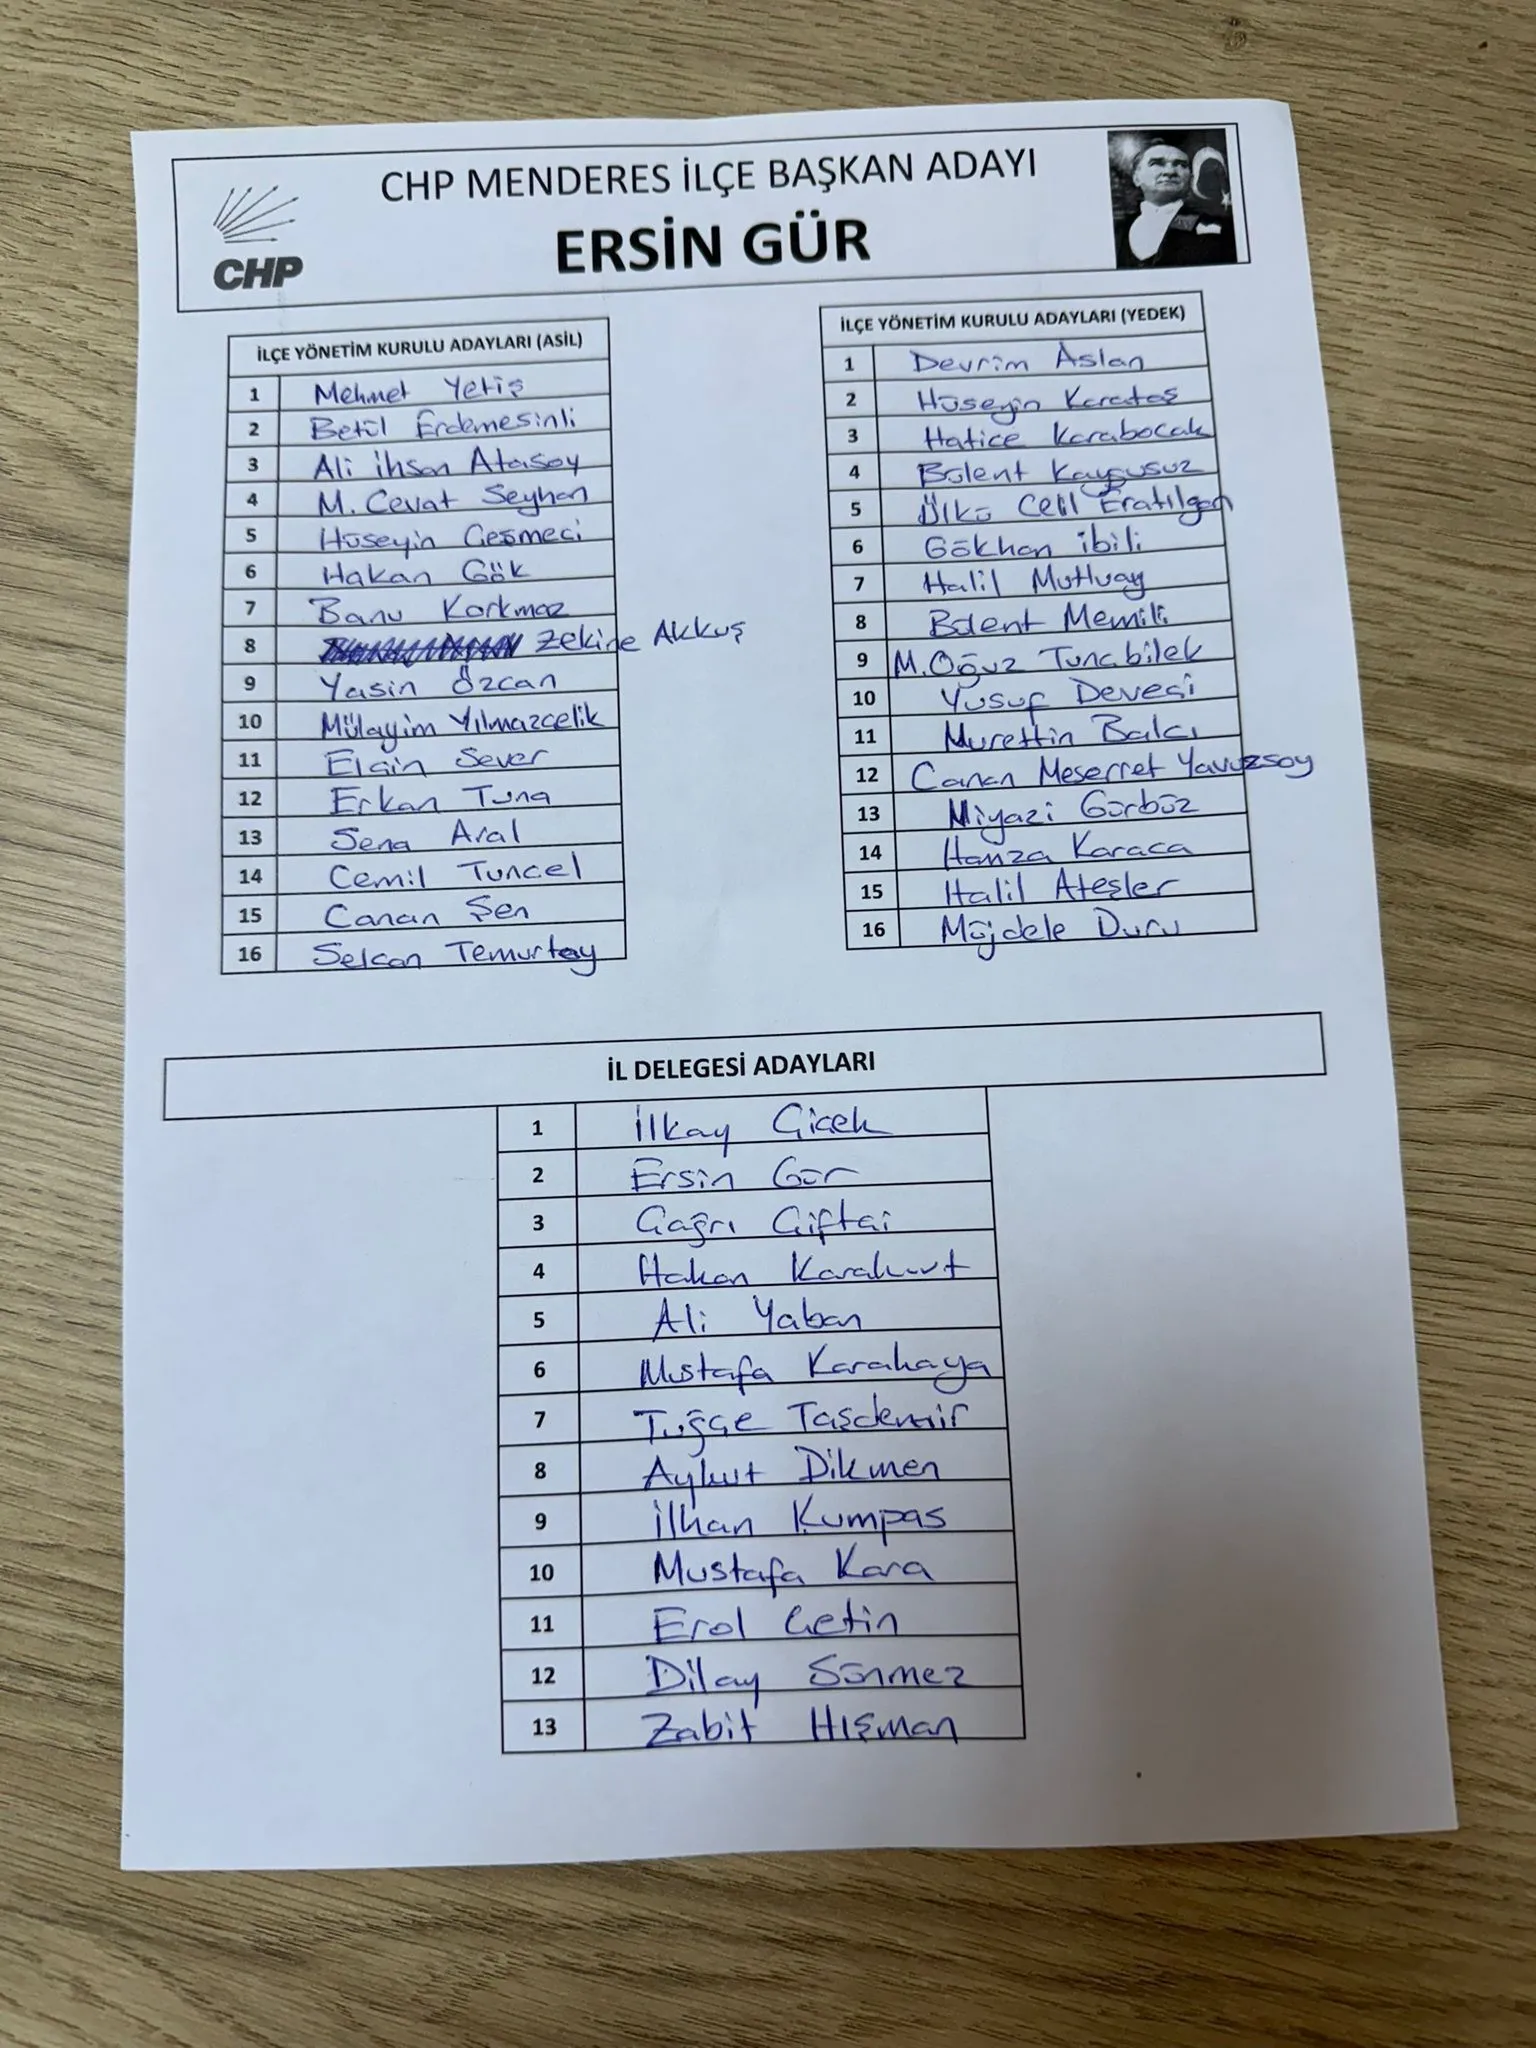 CHP MENDERES İLÇE BAŞKAN ADAYI
ERSİN GÜR
CHP
İLÇE YÖNETİM KURULU ADAYLARI (ASİL)
1 Mehmet Yetiş
2 Betül Erdemesinli
3 Ali İhsan Atasoy
4 M. Cevat Seyhan
5 Hüseyin Çeşmeci
6 Hakan Gök
7 Banu Korkmaz
8 Zekine Akkuş
9 Yasin Özcan
10 Mülayim Yılmazçelik
11 Elçin Sever
12 Erkan Tuna
13 Sena Aral
14 Cemil Tuncel
15 Canan Şen
16 Selcan Temurtay
İLÇE YÖNETİM KURULU ADAYLARI (YEDEK)
1 Devrim Aslan
2 Hüseyin Karataş
3 Hatice Karabocak
4 Bülent Kaygusuz
5 Ülkü Celil Eratılgan
6 Gökhan ibili
7 Halil Mutluay
8 Bülent Memili
9 M. Oğuz Tunabilek
10 Yusuf Deveci
11 Nurettin Balcı
12 Canan Meserret Yavuzsoy
13 Niyazi Gürbüz
14 Hamza Karaca
15 Halil Ateşler
16 Müjdele Duru
İL DELEGESİ ADAYLARI
1 İlkay Çiçek
2 Ersin Gür
3 Çağrı Çiftçi
4 Hakan Karakurt
5 Ali Yaban
6 Mustafa Karakaya
7 Tuğçe Taşdemir
8 Aykut Dikmen
9 İlhan Kumpas
10 Mustafa Kara
11 Erol Çetin
12 Dilay Sönmez
13 Zabit Hışman